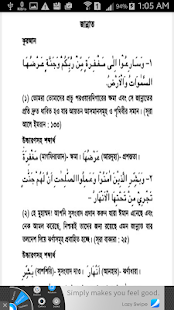 1:05 AM
জান্নাত
কুরআন
١- وَسَارِعُوا إِلَى مَغْفِرَةٍ مِنْ رَبِّكُمْ وَجَنَّةٍ عَرْضُهَا
السَّمَوَاتُ وَالْأَرْضُ
(১) তোমরা তোমাদের প্রভু পরওয়ারদিগারের ক্ষমা এবং সে জান্নাতের
প্রতি দ্রুত ধাবিত হও যার আয়তন আসমানসমূহ ও পৃথিবীর সমান। (সূরা
আলে ইমরান : ১৩৩)
উচ্চারণসহ শব্দার্থ
مَغْفِرَةٌ (মাগফিরাতুন)- ক্ষমা, عَرْضُهَا (আরদুহা)- প্রশস্ততা।
٢- وَبَشِّرِ الَّذِينَ آمَنُوا وَعَمِلُوا الصَّلِحَتِ أَنَّ لَهُمْ جَنَّتٍ
تَجْرِي مِنْ تَحْتِهَا الْأَنْهَارُ
(২) হে মুহাম্মদ! আপনি সুসংবাদ প্রদান করুন যারা ঈমান এনেছে এবং
নেক আমল করেছে, নিশ্চয়ই তাদের জন্যে রয়েছে এমন জান্নাত যার
তলদেশে ঝর্ণাসমূহ প্রবাহিত হচ্ছে। (সূরা বাকারা : ২৫)
উচ্চারণসহ শব্দার্থ
بَشِّرْ (বাশশিরি)- সুসংবাদ দাও। أَنْهَارٌ (আনহার)- ঝর্ণা।
Simply makes you feel good.
Lazy Swipe